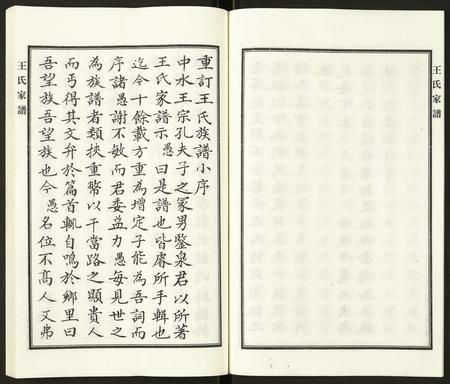 王氏家譜
重訂王氏族譜小序
中水王宗孔夫子之冢男鑒泉君以所著
王氏家譜示愚曰是譜也皆廖所手輯也
迄今十餘載方重為增定子能為吾詞而
序諸愚謝不敏而君委益力愚每見世之
為族譜者類挾重幣以干當路之顯貴人
而丐得其文弁於篇首輒自鳴於鄉里曰
吾望族吾望族也今愚名位不高人又弗
王氏家譜